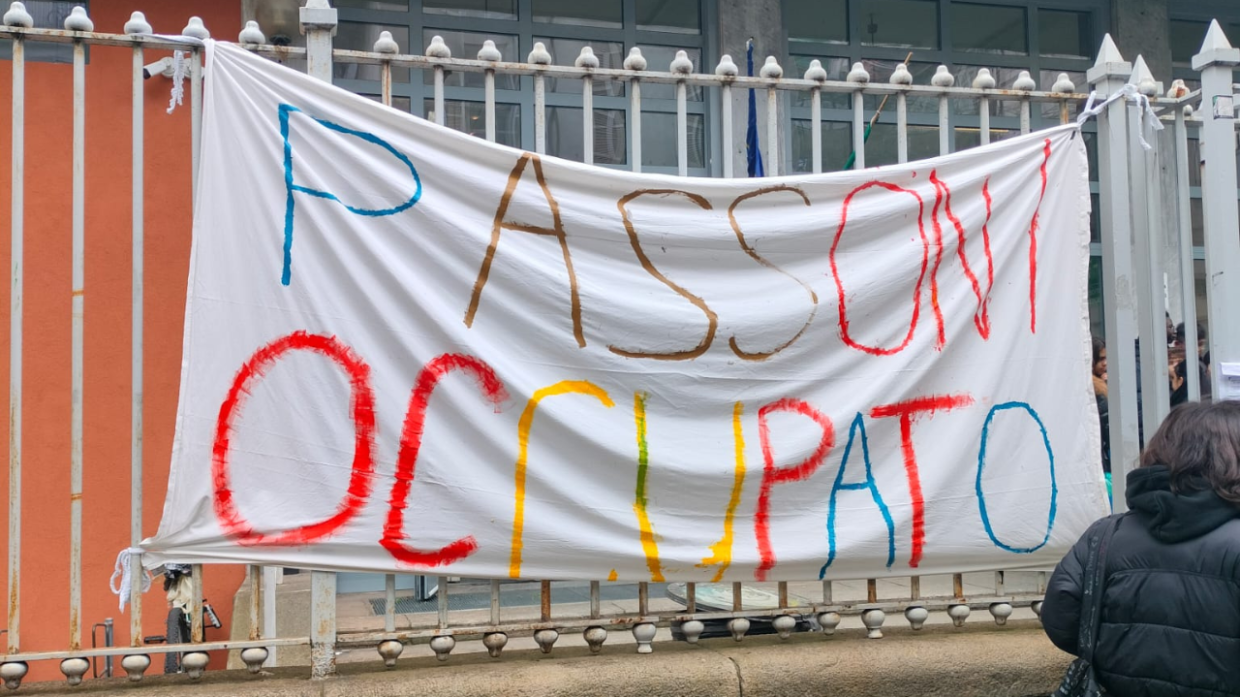 PASSONI
OCCUPATO